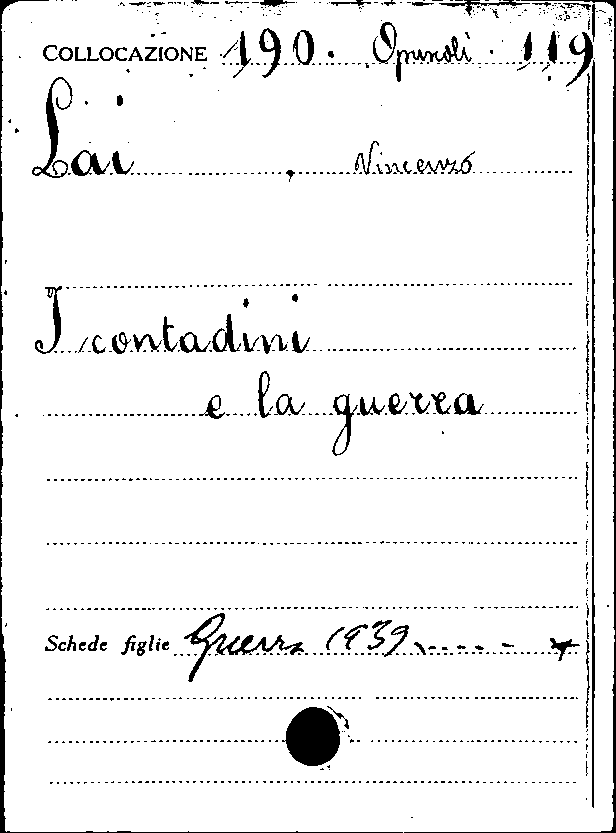 COLLOCAZIONE 190. Opuscoli. 119
Lai, Vincenzo
I contadini
e la guerra
Schede figlie Guerra 1939